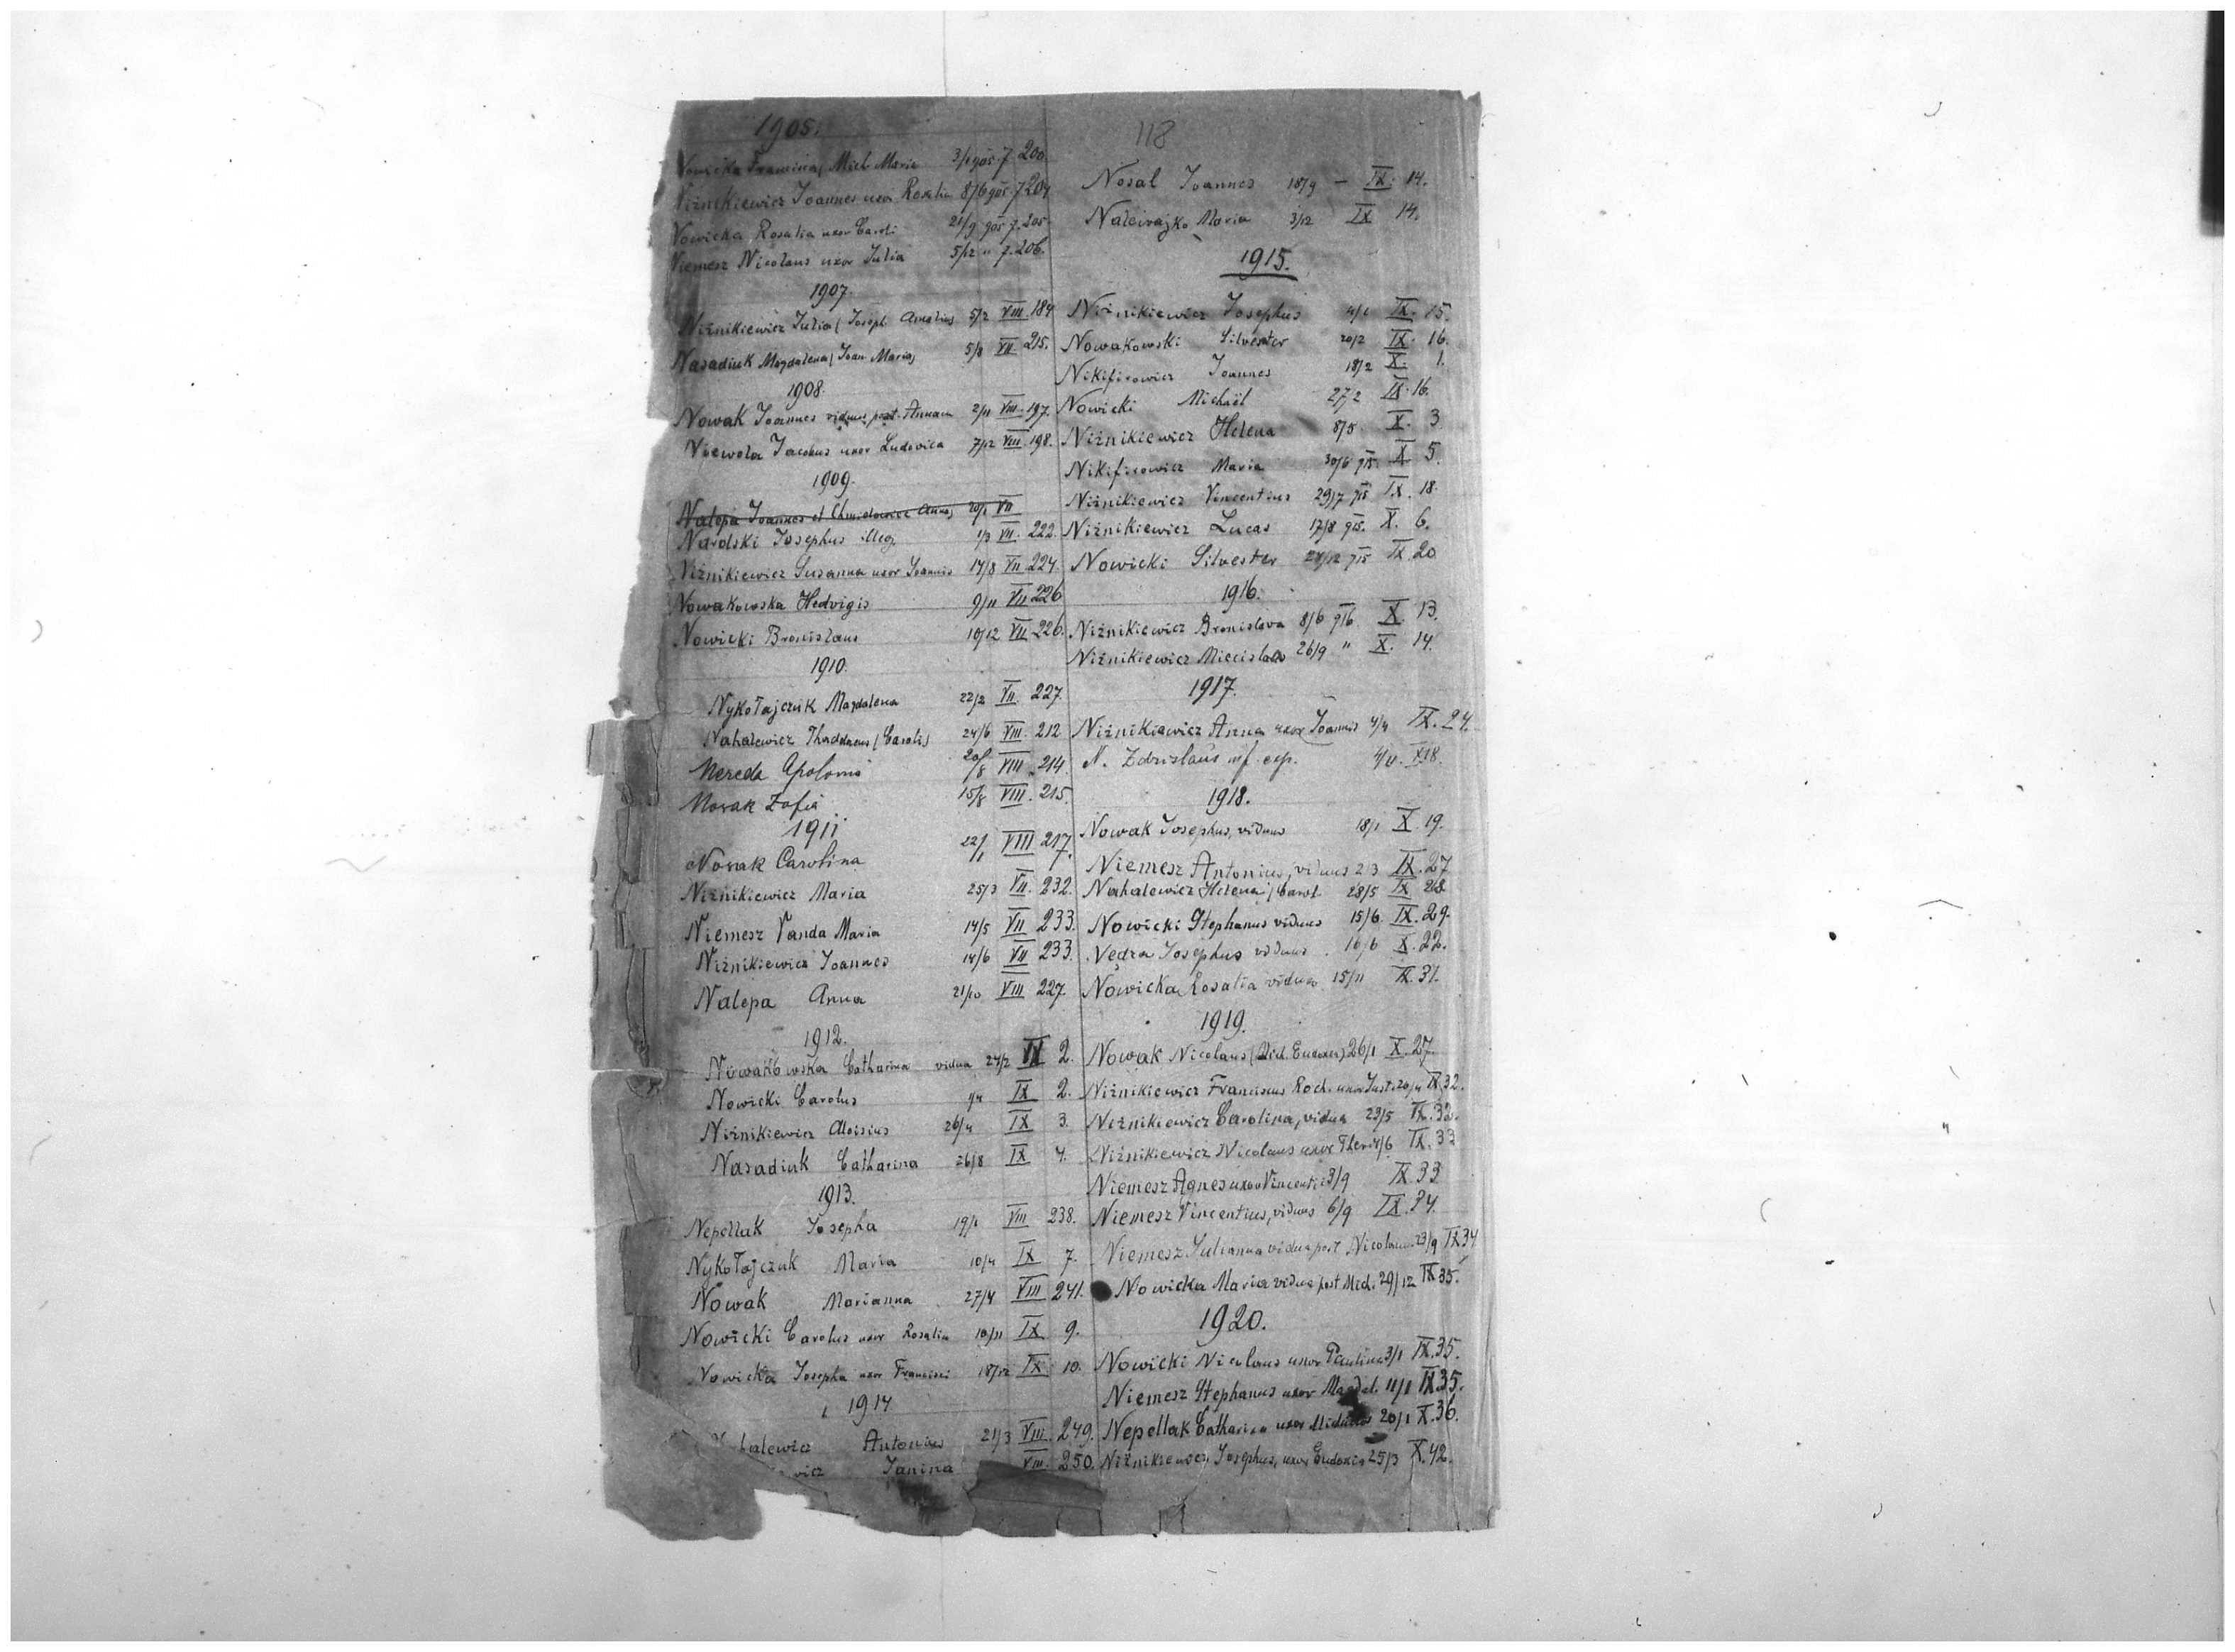 1905.
Nowicka Francisca (Mich. Maria 3/1 905 7. 200.
Niżnikiewicz Joannes uxor Rosalia 8/6 905. 7 204
Nowicka Rosalia uxor Caroli 21/9 905 7. 205.
Niemesz Nicolaus uxor Julia 5/12 " 7. 206.
1907.
Niżnikiewicz Julia (Joseph. Amalia) 5/2 VIII. 184
Nasadiuk Magdalena (Joan. Maria) 5/8 VII. 215.
1908.
Nowak Joannes viduus post. Annam 2/11 VIII. 197.
Niewola Jacobus uxor Ludovica 7/12 VIII. 198.
1909.
Nalepa Joannes et Chmielowicz Anna 20/1 VII
Narolski Josephus illeg. 1/3 VII. 222.
Niżnikiewicz Susanna uxor Joannis 17/8 VII. 224.
Nowakowska Hedvigis 9/11 VII 226
Nowicki Bronislaus 10/12 VII. 226.
1910.
Nykołajczuk Magdalena 22/2 VII. 227.
Nahalewicz Thaddaeus (Caroli) 24/6 VIII. 212
Nereda Apolonia 20/8 VIII. 214.
Nowak Zofia 15/8 VIII. 215.
1911
Nowak Carolina 22/1 VIII 217.
Niżnikiewicz Maria 25/3 VII. 232.
Niemesz Vanda Maria 14/5 VII 233.
Niżnikiewicz Joannes 14/6 VII 233.
Nalepa Anna 21/10 VIII 227.
1912.
Nowakowska Catharina vidua 24/2 IX 2.
Nowicki Carolus 9/4 IX 2.
Niżnikiewicz Aloisius 26/4 IX 3.
Nasadiuk Catharina 26/8 IX 4.
1913.
Nepellak Josepha 19/1 VIII 238.
Nykołajczuk Maria 10/4 IX 7.
Nowak Marianna 27/4 VIII 241.
Nowicki Carolus uxor Rosalia 10/11 IX. 9.
Nowicka Josepha uxor Francisci 18/12 IX. 10.
1914
halewicz Antonius 21/3 VIII. 249.
wicz Janina VIII. 250.
118
Nosal Joannes 18/9 – IX. 14.
Naleivajko Maria 3/12 IX 14.
1915.
Niżnikiewicz Josephus 4/1 IX. 15.
Nowakowski Silvester 20/2 IX. 16.
Nikifirowicz Joannes 18/2 X. 1.
Nowicki Michaël 27/2 IX. 16.
Niżnikiewicz Helena 8/5 X. 3
Nikifirowicz Maria 30/6 915. X 5.
Niżnikiewicz Vincentius 29/7 915 IX. 18.
Niżnikiewicz Lucas 17/8 915. X. 6.
Nowicki Silvester 24/12 915 IX. 20
1916.
Niżnikiewicz Bronislava 8/6 916. X. 13.
Niżnikiewicz Miecislaus 26/9 " X. 14.
1917.
Niżnikiewicz Anna uxor Joannis 4/4 IX. 24.
N. Zdzislaus inf. exp. 4/11. X 18.
1918.
Nowak Josephus, viduus 18/1 X. 19.
Niemesz Antonius, viduus 2 3 IX. 27
Nahalewicz Helena (Carol. 28/5 IX 28
Nowicki Stephanus viduus 15/6. IX. 29.
Nedza Josephus viduus 16/6 X. 22.
Nowicka Rosalia vidua 15/11 IX. 31.
1919.
Nowak Nicolaus (Mich. Eudoxia) 26/1 X. 27.
Niżnikiewicz Franciscus Roch. uxor Just. 20/4 IX 32.
Niżnikiewicz Carolina, vidua 23/5 IX. 32.
Niżnikiewicz Nicolaus uxor Theres /6 IX. 33
Niemesz Agnes uxor Vincenti 3/9 IX. 33
Niemesz Vincentius, viduus 6/9 IX. 34.
Niemesz Julianna vidua post Nicolaum 23/9 IX 34
Nowicka Maria vidua post Mich. 29/12 IX 35.
1920.
Nowicki Nicolaus uxor Paulina 3/1 IX. 35.
Niemesz Stephanus uxor Magdal. 11/1 IX 35.
Nepellak Catharina uxor 20/1 X. 36.
Niżnikiewicz Josephus, uxor Eudoxia 25/3 X. 42.